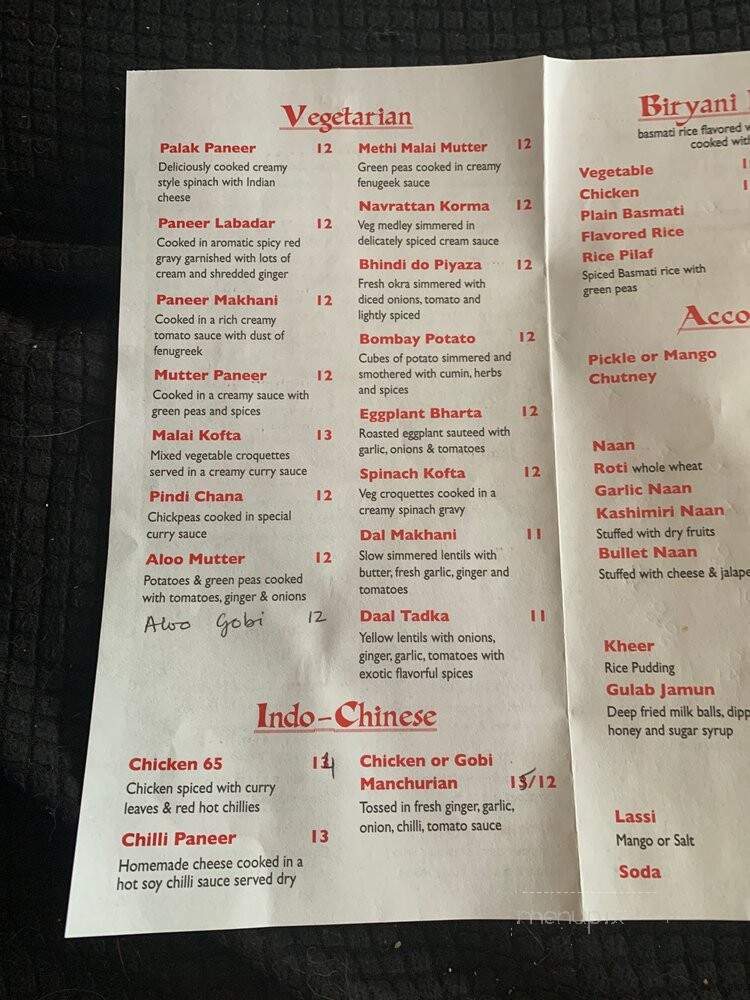 Vegetarian
Palak Paneer 12
Deliciously cooked creamy
style spinach with Indian
cheese
Paneer Labadar 12
Cooked in aromatic spicy red
gravy garnished with lots of
cream and shredded ginger
Paneer Makhani 12
Cooked in a rich creamy
tomato sauce with dust of
fenugreek
Mutter Paneer 12
Cooked in a creamy sauce with
green peas and spices
Malai Kofta 13
Mixed vegetable croquettes
served in a creamy curry sauce
Pindi Chana 12
Chickpeas cooked in special
curry sauce
Aloo Mutter 12
Potatoes & green peas cooked
with tomatoes, ginger & onions
Aloo Gobi 12
Methi Malai Mutter 12
Green peas cooked in creamy
fenugeek sauce
Navrattan Korma 12
Veg medley simmered in
delicately spiced cream sauce
Bhindi do Piyaza 12
Fresh okra simmered with
diced onions, tomato and
lightly spiced
Bombay Potato 12
Cubes of potato simmered and
smothered with cumin, herbs
and spices
Eggplant Bharta 12
Roasted eggplant sauteed with
garlic, onions & tomatoes
Spinach Kofta 12
Veg croquettes cooked in a
creamy spinach gravy
Dal Makhani 11
Slow simmered lentils with
butter, fresh garlic, ginger and
tomatoes
Daal Tadka 11
Yellow lentils with onions,
ginger, garlic, tomatoes with
exotic flavorful spices
Indo-Chinese
Chicken 65 14
Chicken spiced with curry
leaves & red hot chillies
Chilli Paneer 13
Homemade cheese cooked in a
hot soy chilli sauce served dry
Chicken or Gobi
Manchurian 15/12
Tossed in fresh ginger, garlic,
onion, chilli, tomato sauce
Biryani
basmati rice flavored
cooked with
Vegetable
Chicken
Plain Basmati
Flavored Rice
Rice Pilaf
Spiced Basmati rice with
green peas
Acco
Pickle or Mango
Chutney
Naan
Roti whole wheat
Garlic Naan
Kashimiri Naan
Stuffed with dry fruits
Bullet Naan
Stuffed with cheese & jalape
Kheer
Rice Pudding
Gulab Jamun
Deep fried milk balls, dipp
honey and sugar syrup
Lassi
Mango or Salt
Soda
menupix